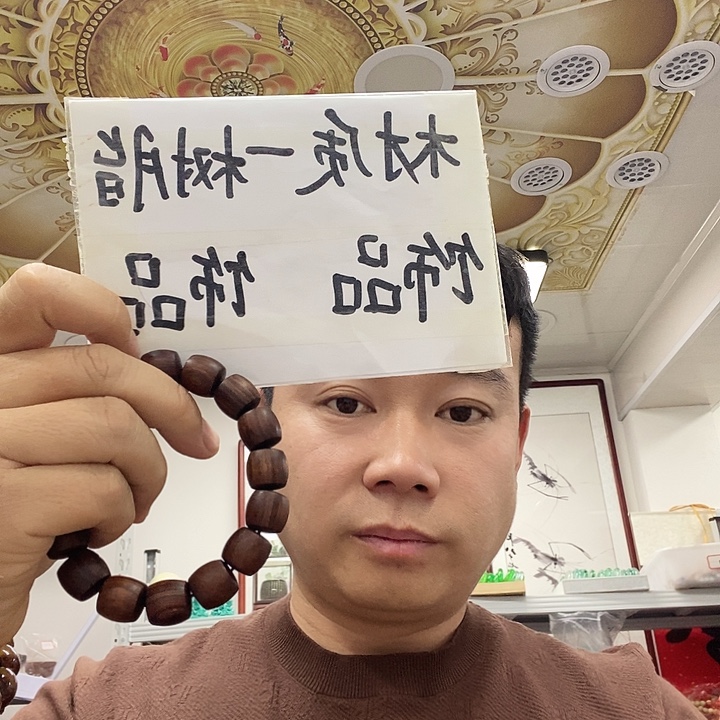 材质一树脂
饰品 饰品